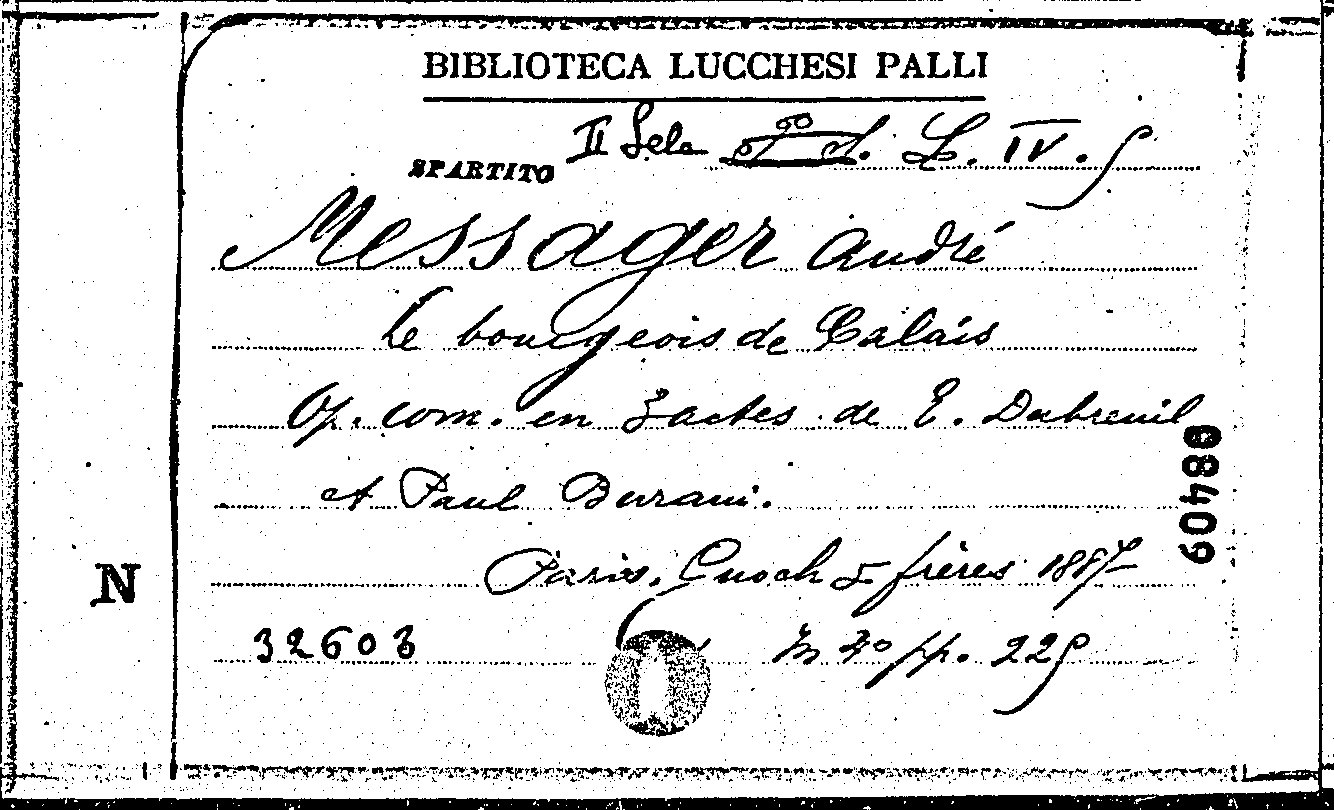 BIBLIOTECA LUCCHESI PALLI
SPARTITO II Sala L. IV. 9
Messager André
le bourgeois de Calais
Op. com. en 3 actes de E. Dubreuil
et Paul Burani.
Paris, Enoch & frères 1887
32603 In 4° pp. 229
N
08409